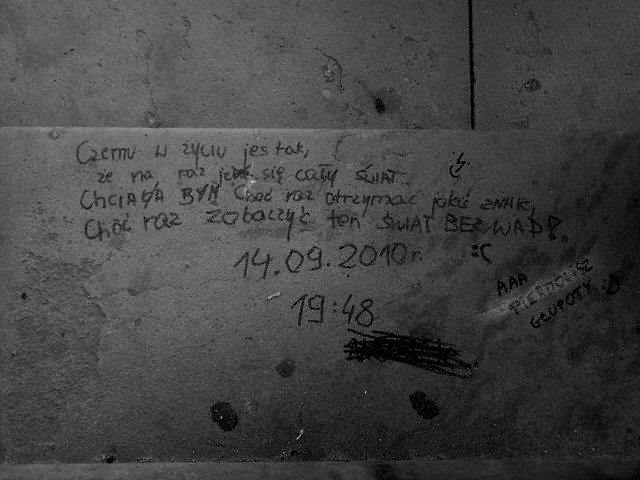 Czemu w życiu jes tak,
że na raz jebie się cały ŚWIAT.
CHCIAŁA BYM Choć raz otrzymać jakiś ZNAK,
Choć raz zobaczyć ten ŚWIAT BEZ WAD!
14.09.2010r. :C
19:48
AAA
PIERDOLISZ
GŁUPOTY :D